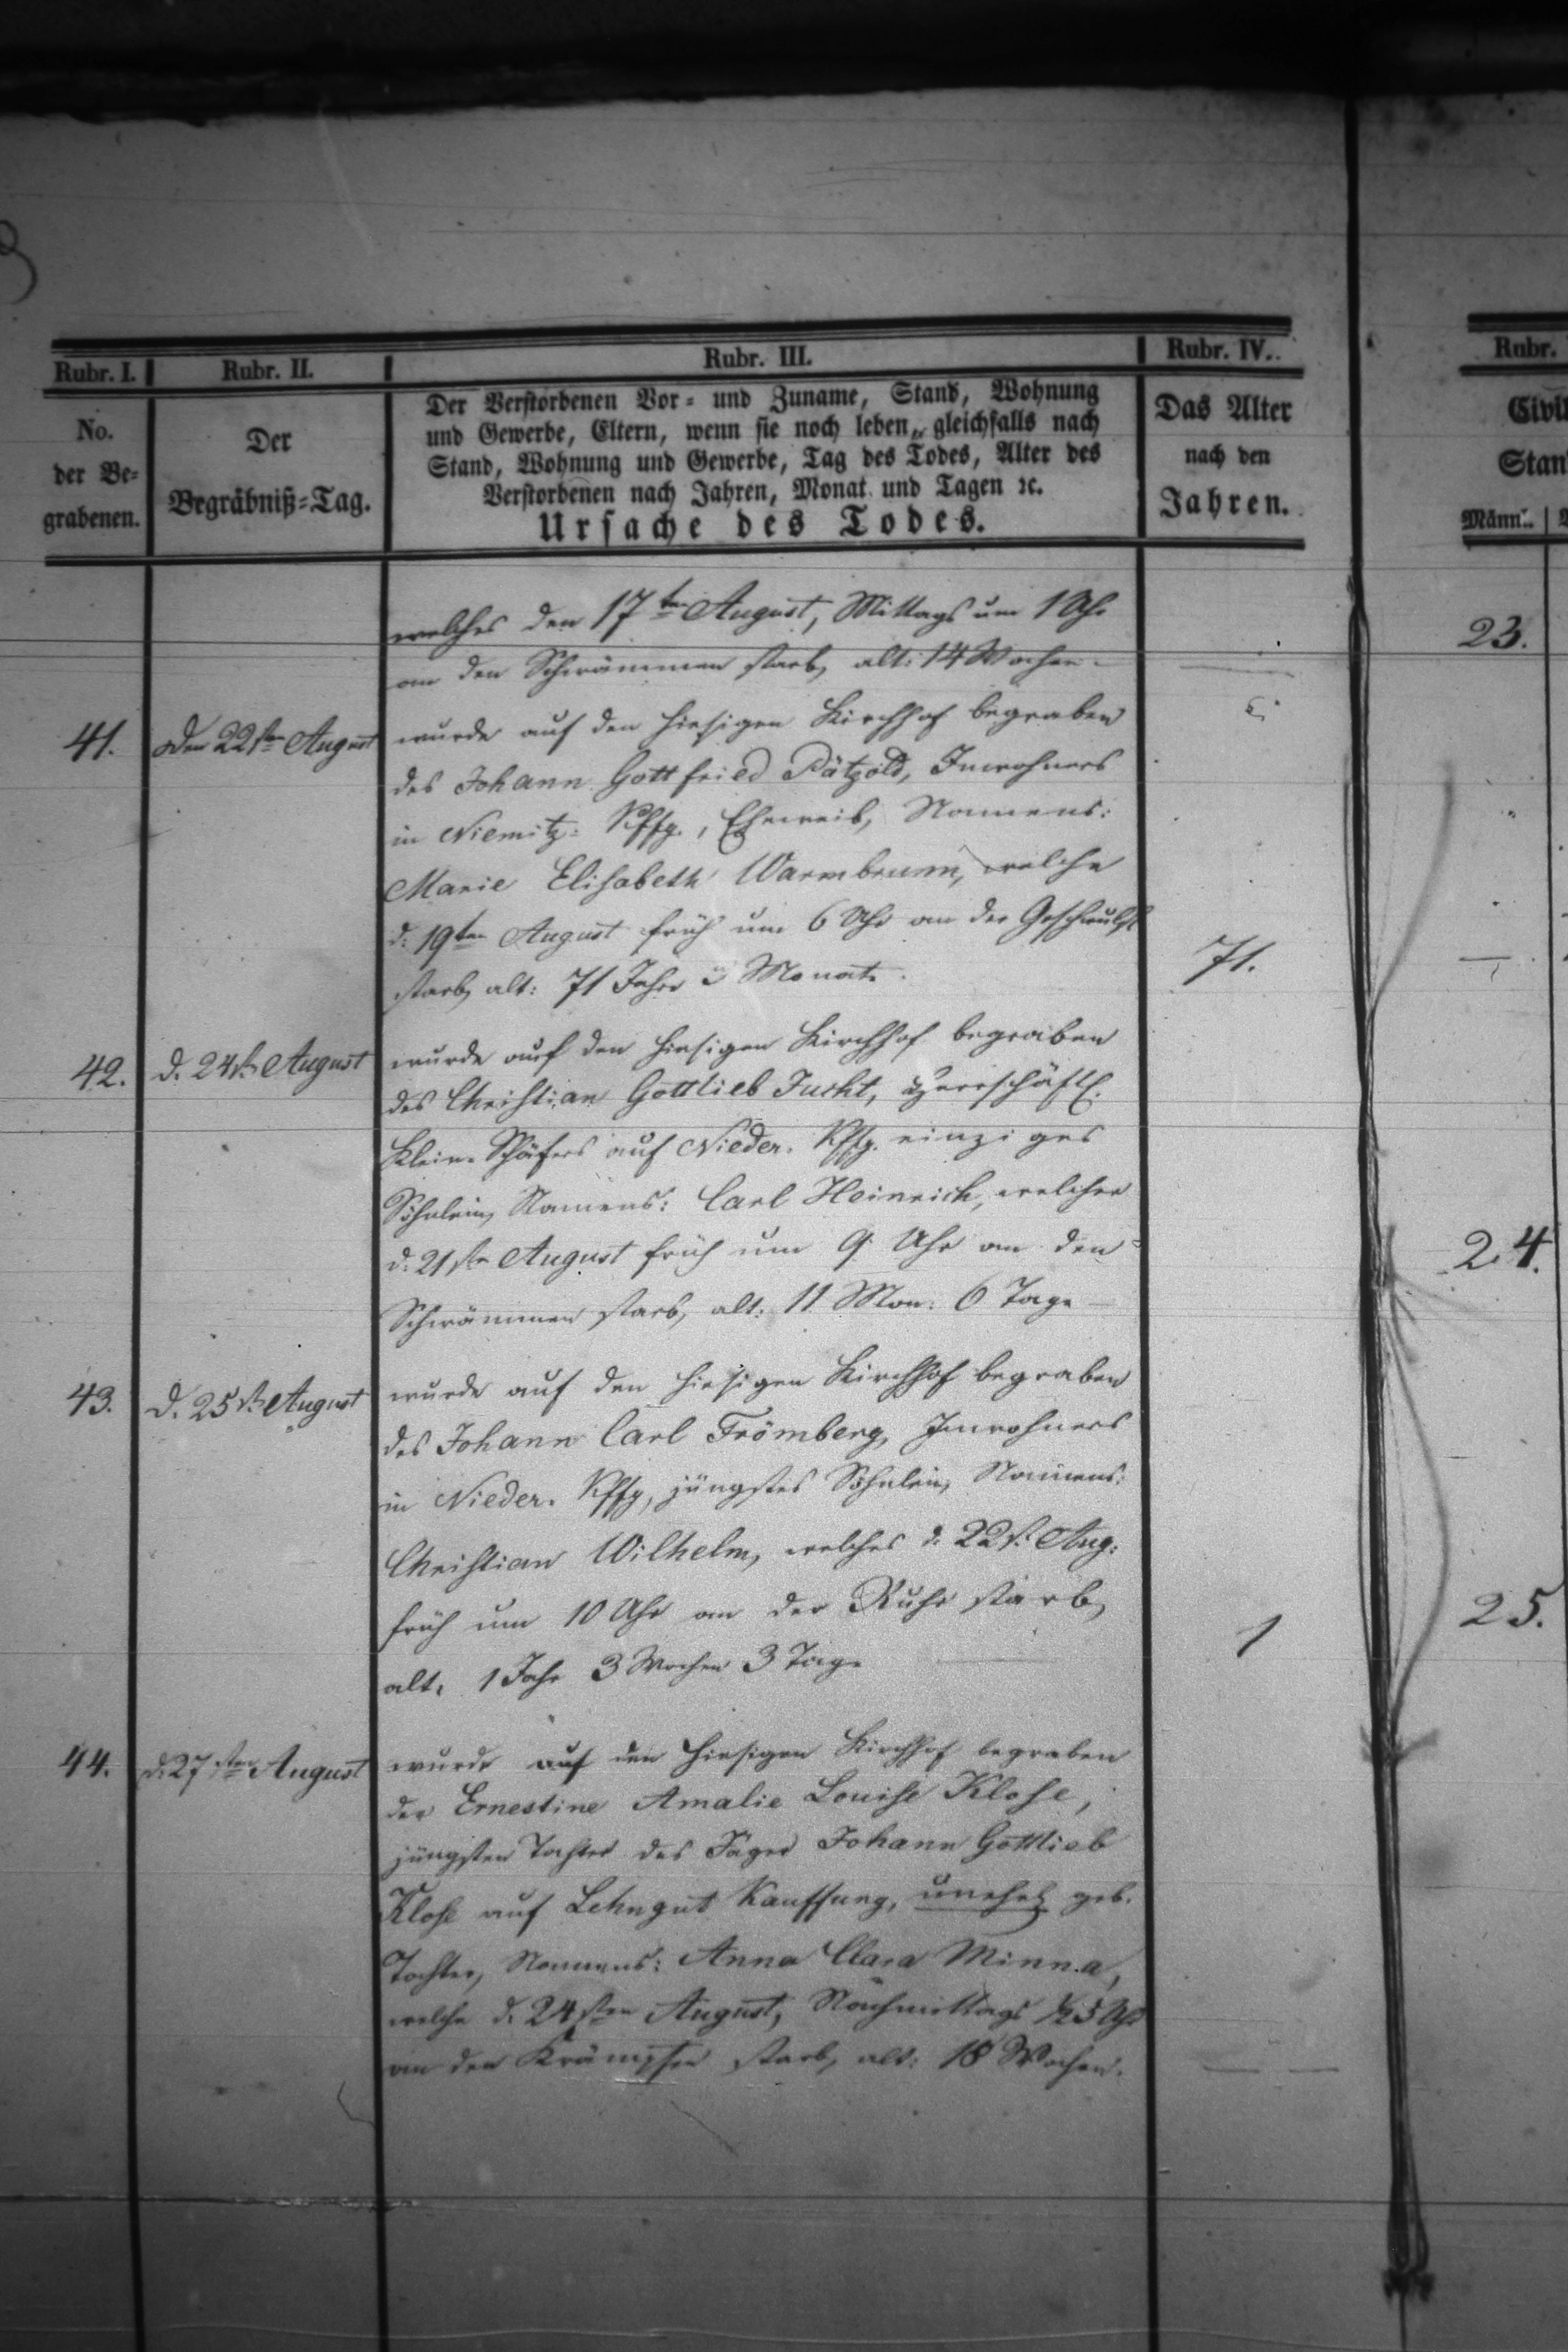 Rubr. I.
Rubr. II.
Rubr. III.
Rubr. IV.
Rubr.
No.
der Be=
grabenen.
Der
Begräbniß=Tag.
Der Verstorbenen Vor= und Zuname, Stand, Wohnung
und Gewerbe, Eltern, wenn sie noch leben, gleichfalls nach
Stand, Wohnung und Gewerbe, Tag des Todes, Alter des
Verstorbenen nach Jahren, Monat und Tagen ꝛc.
Ursache des Todes.
Das Alter
nach den
Jahren.
Civil
Stan
Männ.
welches den 17ten August, Mittags um 1 Uhr
an den Schwämmen starb, alt: 14 Wochen.
23.
41.
Den 22sten August
wurde auf den hiesigen Kirchhof begraben
des Johann Gottfried Pätzold, Inwohners
in Niemitz= Kffg., Eheweib, Namens:
Marie Elisabeth Warmbrunn, welche
d: 19ten August früh um 6 Uhr an der Geschwulst
starb, alt: 71 Jahr Monate.
71.
42.
d. 24st. August
wurde auf den hiesigen Kirchhof begraben
des Christian Gottlieb Jucht, Herrschäftl.
Klein-Schäfers auf Nieder. Kffg. einziges
Söhnlein, Namens: Carl Heinrich, welcher
d: 21sten August früh um 9 Uhr an den
Schwämmen starb, alt: 11 Mon: 6 Tage
24.
43.
d. 25st. August
wurde auf den hiesigen Kirchhof begraben
des Johann Carl Frömberg, Inwohners
in Nieder. Kffg, jüngstes Söhnlein, Namens:
Christian Wilhelm, welches d. 22st. Aug:
früh um 10 Uhr an der Ruhr starb,
alt: 1 Jahr 3 Wochen 3 Tage
1
25.
44.
d. 27sten August
wurde auf den hiesigen Kirchhof begraben
der Ernestine Amalie Louise Klose,
jüngsten Tochter des Jäger Johann Gottlieb
Klose auf Lehngut Kauffung, unehel. geb.
Tochter, Namens: Anna Clara Minna,
welche d. 24sten August, Nachmittags ½5 Uhr
an den Krämpfen starb, alt: 18 Wochen.